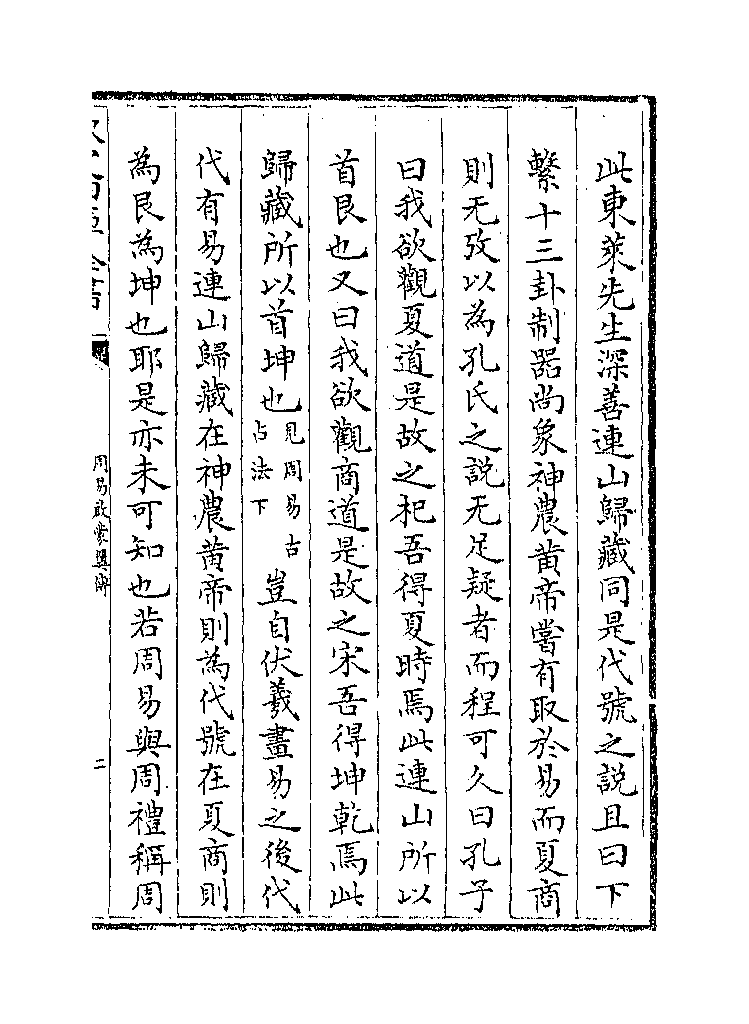 此東萊先生深善連山歸藏同是代號之說且曰下
繫十三卦制器尚象神農黃帝嘗有取於易而夏商
則无攷以為孔氏之說无足疑者而程可久曰孔子
曰我欲觀夏道是故之杞吾得夏時焉此連山所以
首艮也又曰我欲觀商道是故之宋吾得坤乾焉此
歸藏所以首坤也見周易古占法下豈自伏羲畫易之後代
代有易連山歸藏在神農黃帝則為代號在夏商則
為艮為坤也耶是亦未可知也若周易與周禮稱周
周易啟蒙翼傳
二